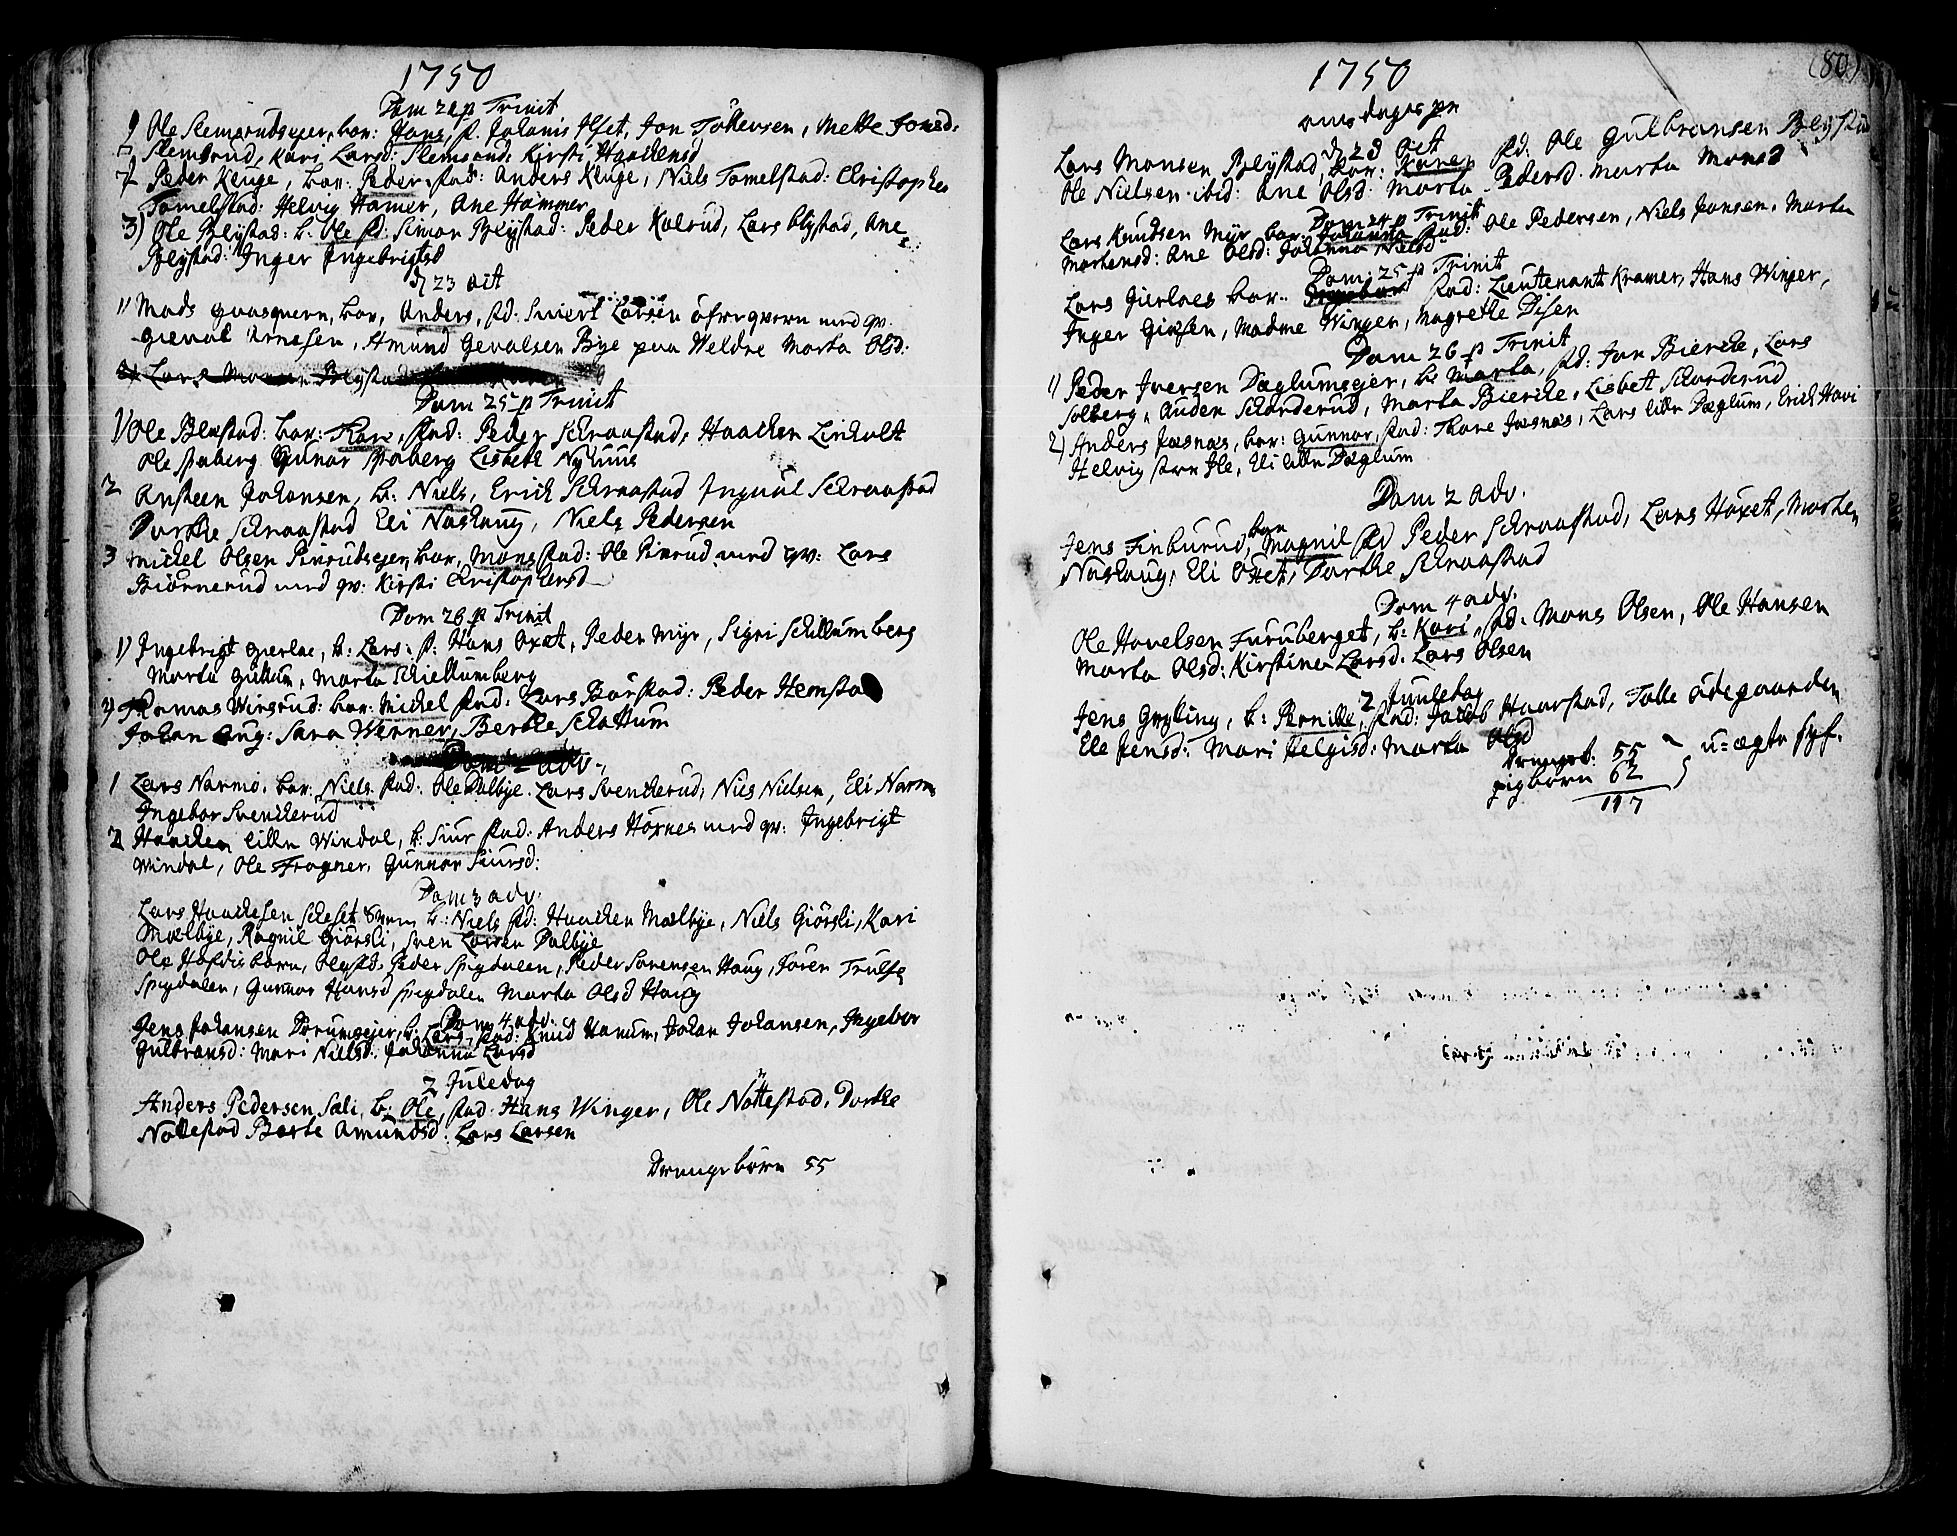 1750
Dom 22 p Trinit
1 Ole Slemsrudsejer, bar: Hans, f. Johanis Ilset, Jon Tollevsen, Mette Jonsd:
Slemsrud, Kari Larsd: Slemsrud: Kirsti Haackensd
2 Peder Kluge, bar: Peder, fad: Anders Kluge, Niels Tomelstad: Christopher
Tomelstad: Helvig Hamer, Ane Hammer
3) Ole Blystad: b: Ole fd: Simon Blystad: Peder Kolrud, Lars blystad, Ane
Blystad: Inger Ingebrigtsd
d 23 oct
1) Mads qvern, bar, Anders, fd: Larsen qvern med qv.
Arnesen, Amund Gevalsen Bye paa Veldre Marta Olsd:
Lars Monsen Blystad
Dom 25 p Trinit
1) Ole Blystad: bar: Kari, fad: Peder Schraastad, Haacken Linholt
Ole staberg Gunor staberg Lisbeth Nyhuus
2 Ansteen Johansen, b: Niels, Erich Schraastad Schraastad
Dorthe Schraastad Eli Nashaug, Niels Pedersen
3 Michel Olsen Pinrudsejer, bar, Mons fad: Ole Pinrud med qv: Lars
Biørnerud med qv: Kirsti Christophersd
Dom 26 p Trinit
1) Ingebrigt gierlue, b: Lars, f. Hans Oxet, Peder Myr, Sigri Schillumberg
Marta, Marta Schiellumberg
2) Thomas Wirsrud: bar: Michel fad: Lars Børstad: Peder Hemstad
Johan: Sara Werner, Berthe Schattum
Dom 2 adv.
1 Lars Narmo, bar: Niels fad: Ole Dalbye. Lars Svencherud, Nies Nielsen, Eli Narmo
Ingebor Svencherud
2 Haacken lille Windal, b: Siur fad: Anders Hornes med qv: Ingebrigt
Windal, Ole Fragner, Gunnor Siursd:
Dom 3 adv.
Lars Haackesen b: Niels fd: Haacken Mælbye, Niels Giørsli, Kari
Mælbye, Ragnil Giørsli, Sven Larsen Dalbye
Ole barn, Ole, fd: Peder Spigdalen, Peder Sorensen Haug, Joren Trulse
Spigdalen, Gunnor Hansd Spigdalen Marta Olsd Haug
Dom 4 adv.
Jens Johansen Dorumsejer, b: Lars, fad: Knud Hanum, Johan Johansen, Ingebor
Gulbransd: Mari Nielsd: Johanna Larsd
2 Juledag
Anders Pedersen Sæli, b: Ole, fad: Hans Winger, Ole Nøttestad, Dorthe
Nøttestad Berte Amundsd: Lars Larsen
Drengebørn 55
(80)
1750
d 23 oct
Lars Monsen Blystad, bar: Karen fd: Ole Gulbransen Blystad
Ole Nielsen ibid: Ane Olsd: Marta Pedersd. Marta Monsd
Dom 24 p Trinit
Lars Knudsen Myr bar: Johanna fad: Ole Pedersen, Niels Jonsen, Marta
Mortensd: Ane Olsd: Johanna Nielsd:
Dom: 25 p Trinit
Lars Gierloes bar: Ingebor fad: Lieutenant Kramer, Hans Winger,
Inger, Madme Winger, Magrethe Disen
Dom 26 p Trinit
1) Peder Iversen Dæglumsejer, b: Marta, fd: Jon Bierche, Lars
Solberg, Auden Scharderud, Marta Bierche, Lisbeth Scharderud
2) Anders Jasnas, bar: Gunnor, fad: Thore Jasnas, Lars lille Dæglum, Erich Hovi
Helvig store Ile, Eli lille Dæglum
Dom 2 adv.
Jens Finburud, barn Magnil fd Peder Schraastad, Lars Hoxet, Morten
Nashaug, Eli Oxet, Dorthe Schraastad
Dom 4 adv.
Ole Havelsen Furuberget, b: Kari, fd: Mons Olsen, Ole Hansen
Marta Olsd: Kirstina Larsd. Lars Olsen
2 Juuledag
Jens Gryling, b: Pernille, fad: Jacob Haarstad, Tolle ødegaarden
Ele Jensd: Mari Helgisd: Marta Olsd
Drengeb: 55
pigbørn 62
117
u-ægte